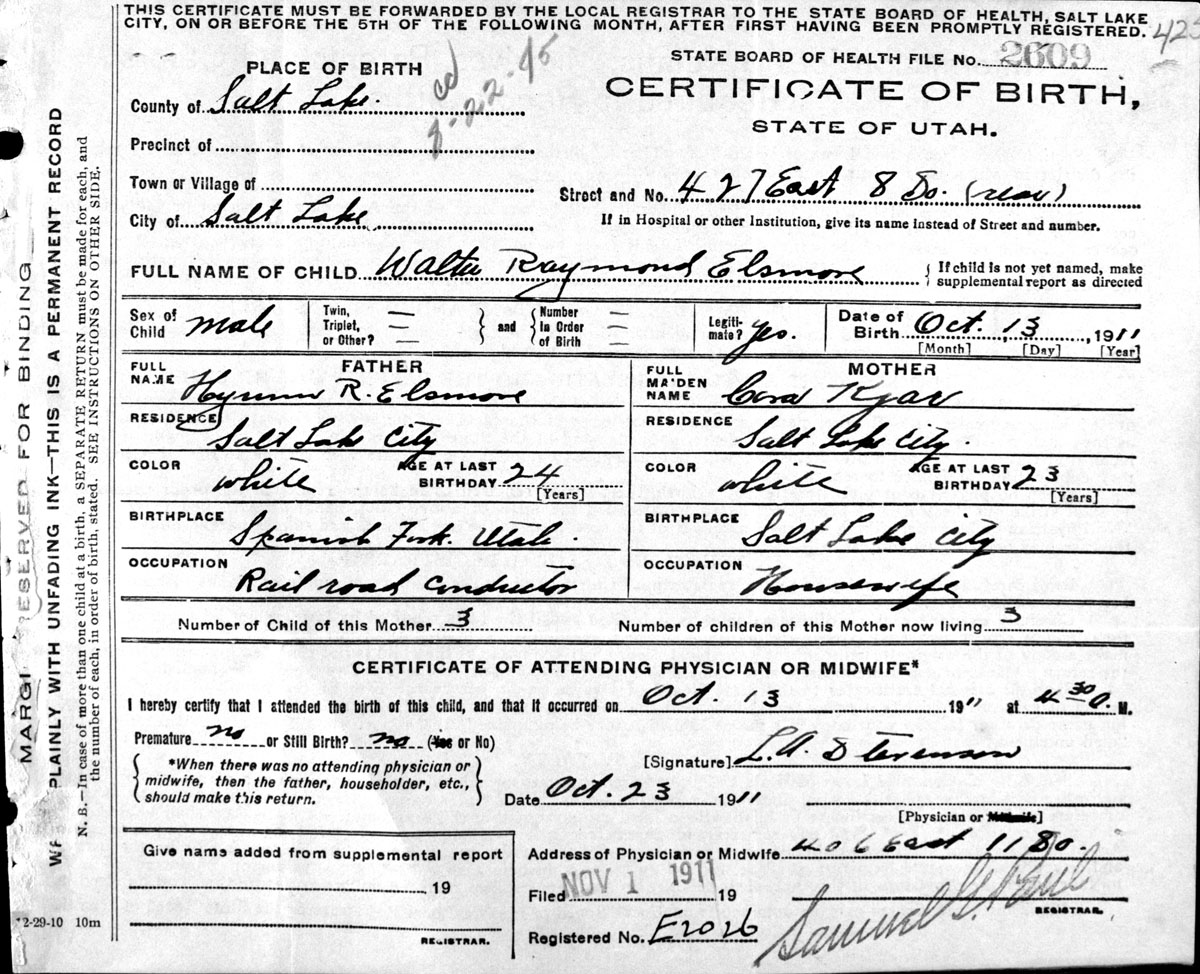 THIS CERTIFICATE MUST BE FORWARDED BY THE LOCAL REGISTRAR TO THE STATE BOARD OF HEALTH, SALT LAKE
CITY, ON OR BEFORE THE 5TH OF THE FOLLOWING MONTH, AFTER FIRST HAVING BEEN PROMPTLY REGISTERED.
STATE BOARD OF HEALTH FILE No. 2609
CERTIFICATE OF BIRTH,
STATE OF UTAH.
PLACE OF BIRTH
County of Salt Lake.
Precinct of
Town or Village of
City of Salt Lake
Street and No. 427 East 8 So. (rear)
If in Hospital or other Institution, give its name instead of Street and number.
FULL NAME OF CHILD Walter Raymond Elsmore
If child is not yet named, make
supplemental report as directed
Sex of
Child male
Twin,
Triplet,
or Other? —
and
Number
in Order
of Birth —
Legiti-
mate? yes.
Date of
Birth Oct. 13, 1911
[Month] [Day] [Year]
FATHER
FULL
NAME Hyrum R. Elsmore
RESIDENCE Salt Lake City
COLOR white
AGE AT LAST
BIRTHDAY 24
[Years]
BIRTHPLACE Spanish Fork. Utah.
OCCUPATION Rail road Conductor
MOTHER
FULL
MAIDEN
NAME Cora Kjar
RESIDENCE Salt Lake City.
COLOR white
AGE AT LAST
BIRTHDAY 23
[Years]
BIRTHPLACE Salt Lake City
OCCUPATION Housewife
Number of Child of this Mother 3
Number of children of this Mother now living 3
CERTIFICATE OF ATTENDING PHYSICIAN OR MIDWIFE*
I hereby certify that I attended the birth of this child, and that it occurred on Oct. 13 1911 at 4 30 a. M.
Premature no or Still Birth? no (Yes or No)
*When there was no attending physician or
midwife, then the father, householder, etc.,
should make this return.
[Signature] L. A. Stevenson
Date Oct. 23 1911
[Physician or Midwife]
Give name added from supplemental report
19
REGISTRAR.
Address of Physician or Midwife 406 East 11 So.
Filed NOV 1 1911 19
Samuel G. Paul
REGISTRAR.
Registered No. E2026
12-29-10 10m
MARGIN RESERVED FOR BINDING
PLAINLY WITH UNFADING INK—THIS IS A PERMANENT RECORD
N. B.—In case of more than one child at a birth, a SEPARATE RETURN must be made for each, and
the number of each, in order of birth, stated. SEE INSTRUCTIONS ON OTHER SIDE.